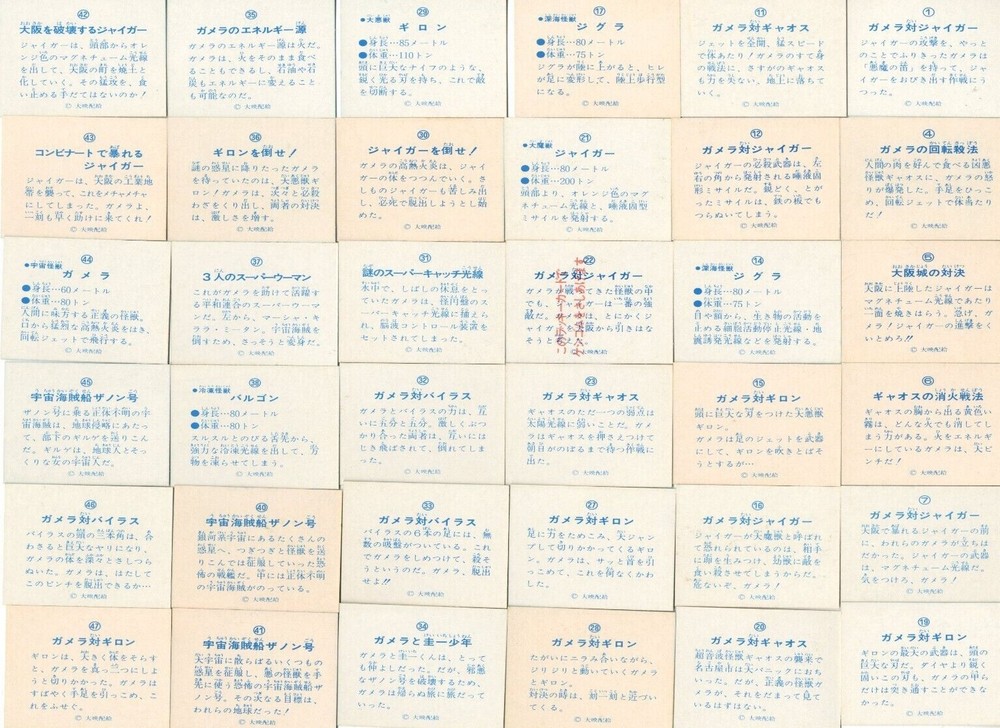 ㊷
大阪を破壊するジャイガー
ジャイガーは、頭部からオレ
ンジ色のマグネチューム光線
を出して、大阪の町を焼土と
化していく。その猛攻を、食
い止める手だてはないのか!
© 大映配給
㉟
ガメラのエネルギー源
ガメラのエネルギー源は火だ。
ガメラは、火をそのまま食べ
ることもできるし、石油や石
炭もエネルギーに変えること
も可能なのだ。
© 大映配給
㉙
●大悪獣
ギロン
●身長…85メートル
●体重…110トン
頭に巨大なナイフのような、
鋭く光る刃を持ち、これで敵
を切断する。
© 大映配給
⑰
●深海怪獣
ジグラ
●身長…80メートル
●体重…75トン
ジグラが陸に上がると、ヒレ
が足に変形して、陸上歩行型
になる。
© 大映配給
⑪
ガメラ対ギャオス
ジェットを全開、猛スピード
で体あたり!ガメラのすて身
の戦法に、さすがのギャオス
も力を失ない、地上に落ちて
いく。
© 大映配給
①
ガメラ対ジャイガー
ジャイガーの攻撃を、やっと
のことでふりきったガメラは
「悪魔の笛」を持って、ジャイ
ガーをおびき出す作戦にう
つった。
© 大映配給
㊸
コンビナートで暴れる
ジャイガー
ジャイガーは、大阪の工業地
帯を襲って、これをメチャメチャ
にしてしまった。ガメラよ、
一刻も早く助けに来てくれ!
© 大映配給
㊱
ギロンを倒せ!
謎の惑星に降りたったガメラ
を待っていたのは、大悪獣ギ
ロン!ガメラは、次々と必殺
わざをくり出し、両者の対決
は、激しさを増す。
© 大映配給
㉚
ジャイガーを倒せ!
ガメラの高熱火炎は、ジャイ
ガーの体をつつんでいく。さ
しものジャイガーも苦しみ出
し、必死で脱出しようとし始
めた。
© 大映配給
㉑
●大魔獣
ジャイガー
●身長…80メートル
●体重…200トン
頭部より、オレンジ色のマグ
ネチューム光線と、唾液固型
ミサイルを発射する。
© 大映配給
⑫
ガメラ対ジャイガー
ジャイガーの必殺武器は、左
右の角から発射される唾液固
形ミサイルだ。鋭どく、とが
ったミサイルは、鉄の板でも
つらぬいてしまう。
© 大映配給
④
ガメラの回転殺法
人間の肉を好んで食べる凶悪
怪獣ギャオスに、ガメラの怒
りが爆発した。手足をひっこ
め、回転ジェットで体当たり
だ!
© 大映配給
㊹
●宇宙怪獣
ガメラ
●身長…60メートル
●体重…80トン
人間に味方する正義の怪獣。
口から猛烈な高熱火炎をはき、
回転ジェットで飛行する。
© 大映配給
㊲
3人のスーパーウーマン
これがガメラを助けて活躍す
る平和連合のスーパーウーマ
ンだ。左から、マーシャ・キ
ララ・ミータン。宇宙海賊を
倒すため、さっそうと変身だ。
© 大映配給
㉛
謎のスーパーキャッチ光線
水中で、しばしの休息をとっ
ていたガメラは、怪円盤のス
ーパーキャッチ光線に捕えら
れ、脳波コントロール装置を
セットされてしまった。
© 大映配給
㉒
ガメラ対ジャイガー
ガメラが戦ってきた怪獣の中
でも、ジャイガーは一番の強
敵だ。
© 大映配給
⑭
●深海怪獣
ジグラ
●身長…80メートル
●体重…75トン
目や頭から、生き物の活動を
止める細胞活動停止光線・地
震誘発光線などを発射する。
© 大映配給
⑤
大阪城の対決
大阪に上陸したジャイガーは
マグネチューム光線であたり
一面を焼きはらう。急げ、ガ
メラ!ジャイガーの進撃をく
いとめろ!!
© 大映配給
㊺
宇宙海賊船ザノン号
ザノン号に乗る正体不明の宇
宙海賊は、地球侵略にあたっ
て、部下のギルゲを送りこん
だ。ギルゲは、地球人とそっ
くりな女の宇宙人だ。
© 大映配給
㊳
●冷凍怪獣
バルゴン
●身長…80メートル
●体重…80トン
スルスルとのびる舌先から、
強力な冷凍光線を出して、万
物を凍らせてしまう。
© 大映配給
㉜
ガメラ対バイラス
ガメラとバイラスの力は、互
いに五分と五分。激しくぶつ
かり合った両者は、互いには
じき飛ばされて、倒れてしま
った。
© 大映配給
㉓
ガメラ対ギャオス
ギャオスのただ一つの弱点は
太陽光線に弱いことだ。ガメ
ラはギャオスを押さえつけて
朝日がのぼるまで待つ作戦に
出た。
© 大映配給
⑮
ガメラ対ギロン
頭に巨大な刃をつけた大悪獣
ギロン。
ガメラは足のジェットを武器
にして、ギロンを吹きとばそ
うとするが…
© 大映配給
⑥
ギャオスの消火戦法
ギャオスの胸から出る黄色い
霧は、どんな火でも消してし
まう力がある。火をエネルギ
ーにしているガメラは、大ピ
ンチだ!
© 大映配給
㊻
ガメラ対バイラス
バイラスの頭の三本角は、合
わさると巨大なヤリになり、
ガメラの体を深々とさしつら
ぬいた。ガメラは、はたして
このピンチを脱出できるか…
© 大映配給
㊵
宇宙海賊船ザノン号
銀河系宇宙にあるたくさんの
惑星へ、つぎつぎと怪獣を送
りこんでは征服していった恐
怖の戦艦だ。中には正体不明
の宇宙海賊がのっている。
© 大映配給
㉝
ガメラ対バイラス
バイラスの6本の足には、無
数の吸盤がついている。これ
でガメラをしめつけて、殺そ
うというのだ。ガメラ、脱出
せよ!!
© 大映配給
㉗
ガメラ対ギロン
足に力をためこみ、大ジャン
プして切りかかってくるギロ
ン。ガメラは、サッと首を引
っこめて、これを何なくかわ
した。
© 大映配給
⑯
ガメラ対ジャイガー
ジャイガーが大魔獣と呼ばれ
て恐れられているのは、相手
に卵を生みつけ、幼獣に敵を
食い殺させてしまうからだ。
危ないぞ、ガメラ!
© 大映配給
⑦
ガメラ対ジャイガー
大阪で暴れるジャイガーの前
に、われらのガメラが立ちは
だかった。ジャイガーの武器
は、マグネチューム光線だ。
気をつけろ、ガメラ!
© 大映配給
㊼
ガメラ対ギロン
ギロンは、大きく体をそらす
と、ガメラを真っ二つにしよ
うと切りかかった。ガメラは
すばやく手足を引っこめ、これ
をふせぐ。
© 大映配給
㊶
宇宙海賊船ザノン号
大宇宙に散らばるいくつもの
惑星を征服し、悪の怪獣を手
先に使う恐怖の宇宙海賊船ザ
ノン号。その次なる目標は、
われらの地球だった!
© 大映配給
㉞
ガメラと圭一少年
ガメラと圭一くんは、とって
も仲よしだった。だが、邪悪
なザノン号を破壊するため、
ガメラは帰らぬ旅に旅だって
いった。
© 大映配給
㉘
ガメラ対ギロン
たがいにニラみ合いながら、
ジリジリと動いていくガメラ
とギロン。
対決の時は、刻一刻と近づい
てくる。
© 大映配給
⑳
ガメラ対ギャオス
超音波怪獣ギャオスの襲来で
名古屋市は大パニックにおち
いった。だが、正義の怪獣ガ
メラが、それをだまって見て
いるはずはない。
© 大映配給
⑲
ガメラ対ギロン
ギロンの最大の武器は、頭の
巨大な刃だ。ダイヤより鋭く
固いこの刃も、ガメラの甲ら
だけは突き通すことができな
かった。
© 大映配給